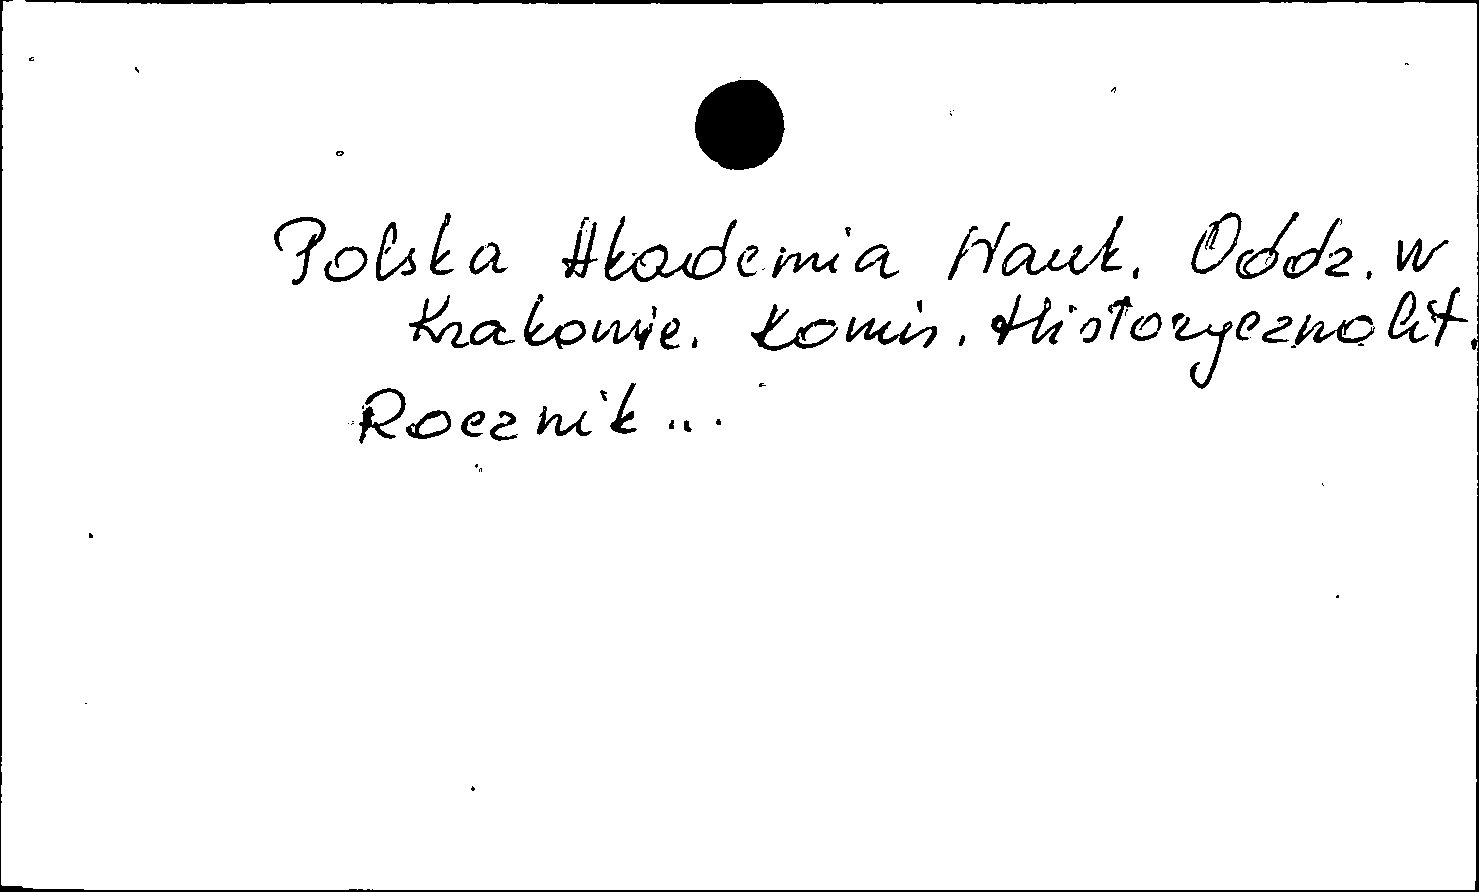 Polska Akademia Nauk. Oddz. w
Krakowie. Komis. Historycznolit.
Rocznik...